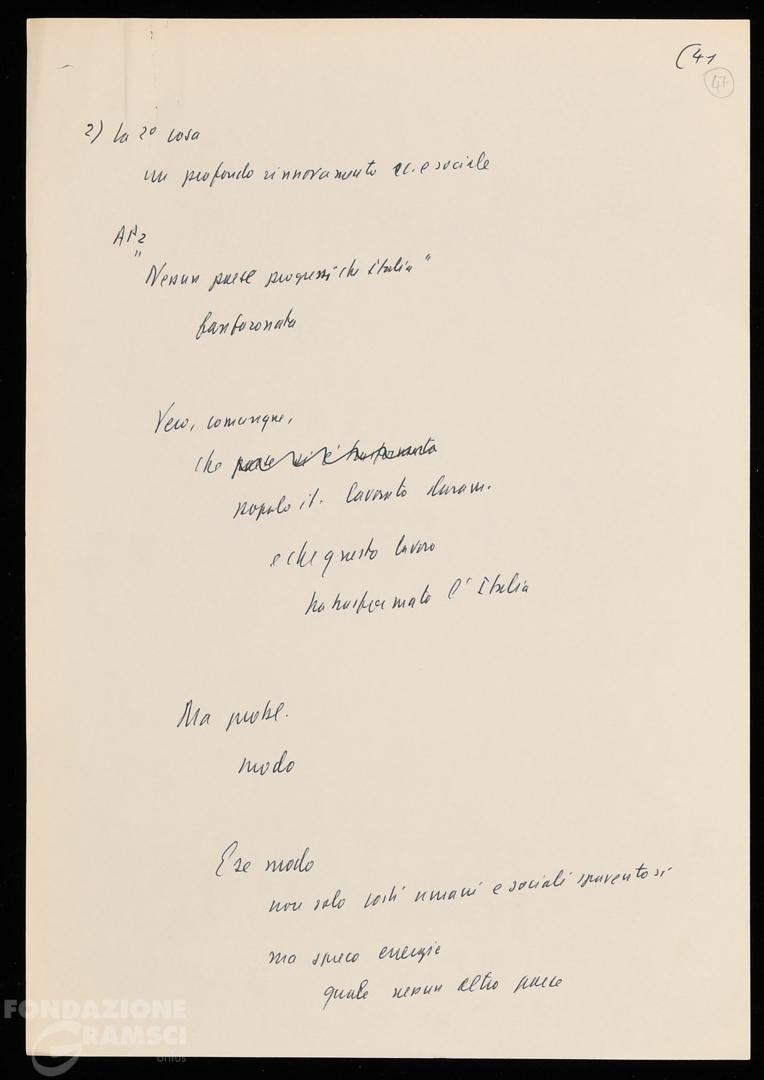 (41
47
2) La 2º cosa
un profondo rinnovamento ec. e sociale
"Nessun paese progressi che Italia"
fanfaronata
Vero, comunque,
che paese si è trasformato
popolo it. lavorato duram.
e che questo lavoro
ha trasformato l'Italia
Ma probl.
modo
E se modo
non solo costi umani e sociali spaventosi
ma spreco energie
quale nessun altro paese
FONDAZIONE
GRAMSCI
onlus